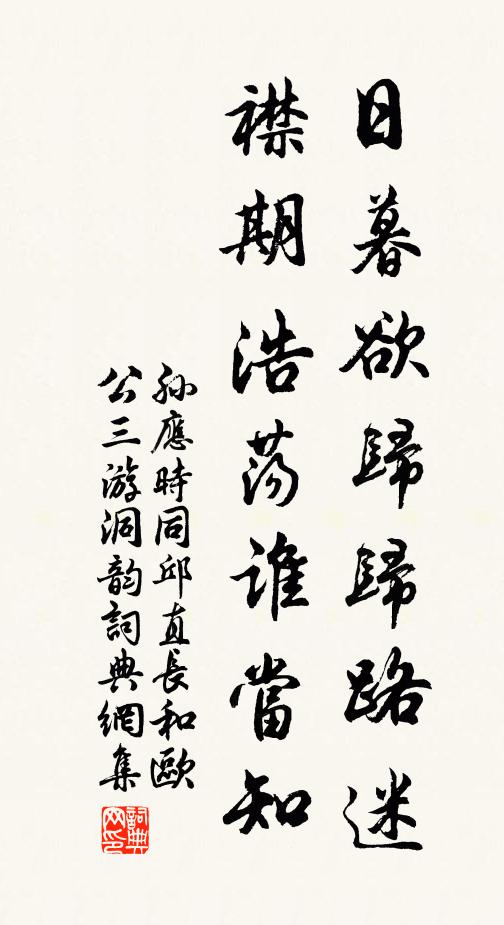 日暮欲歸歸路迷
襟期浩荡誰當知
孙應時同邱直長和歐
公三游洞韵詞典網集
詞典网印